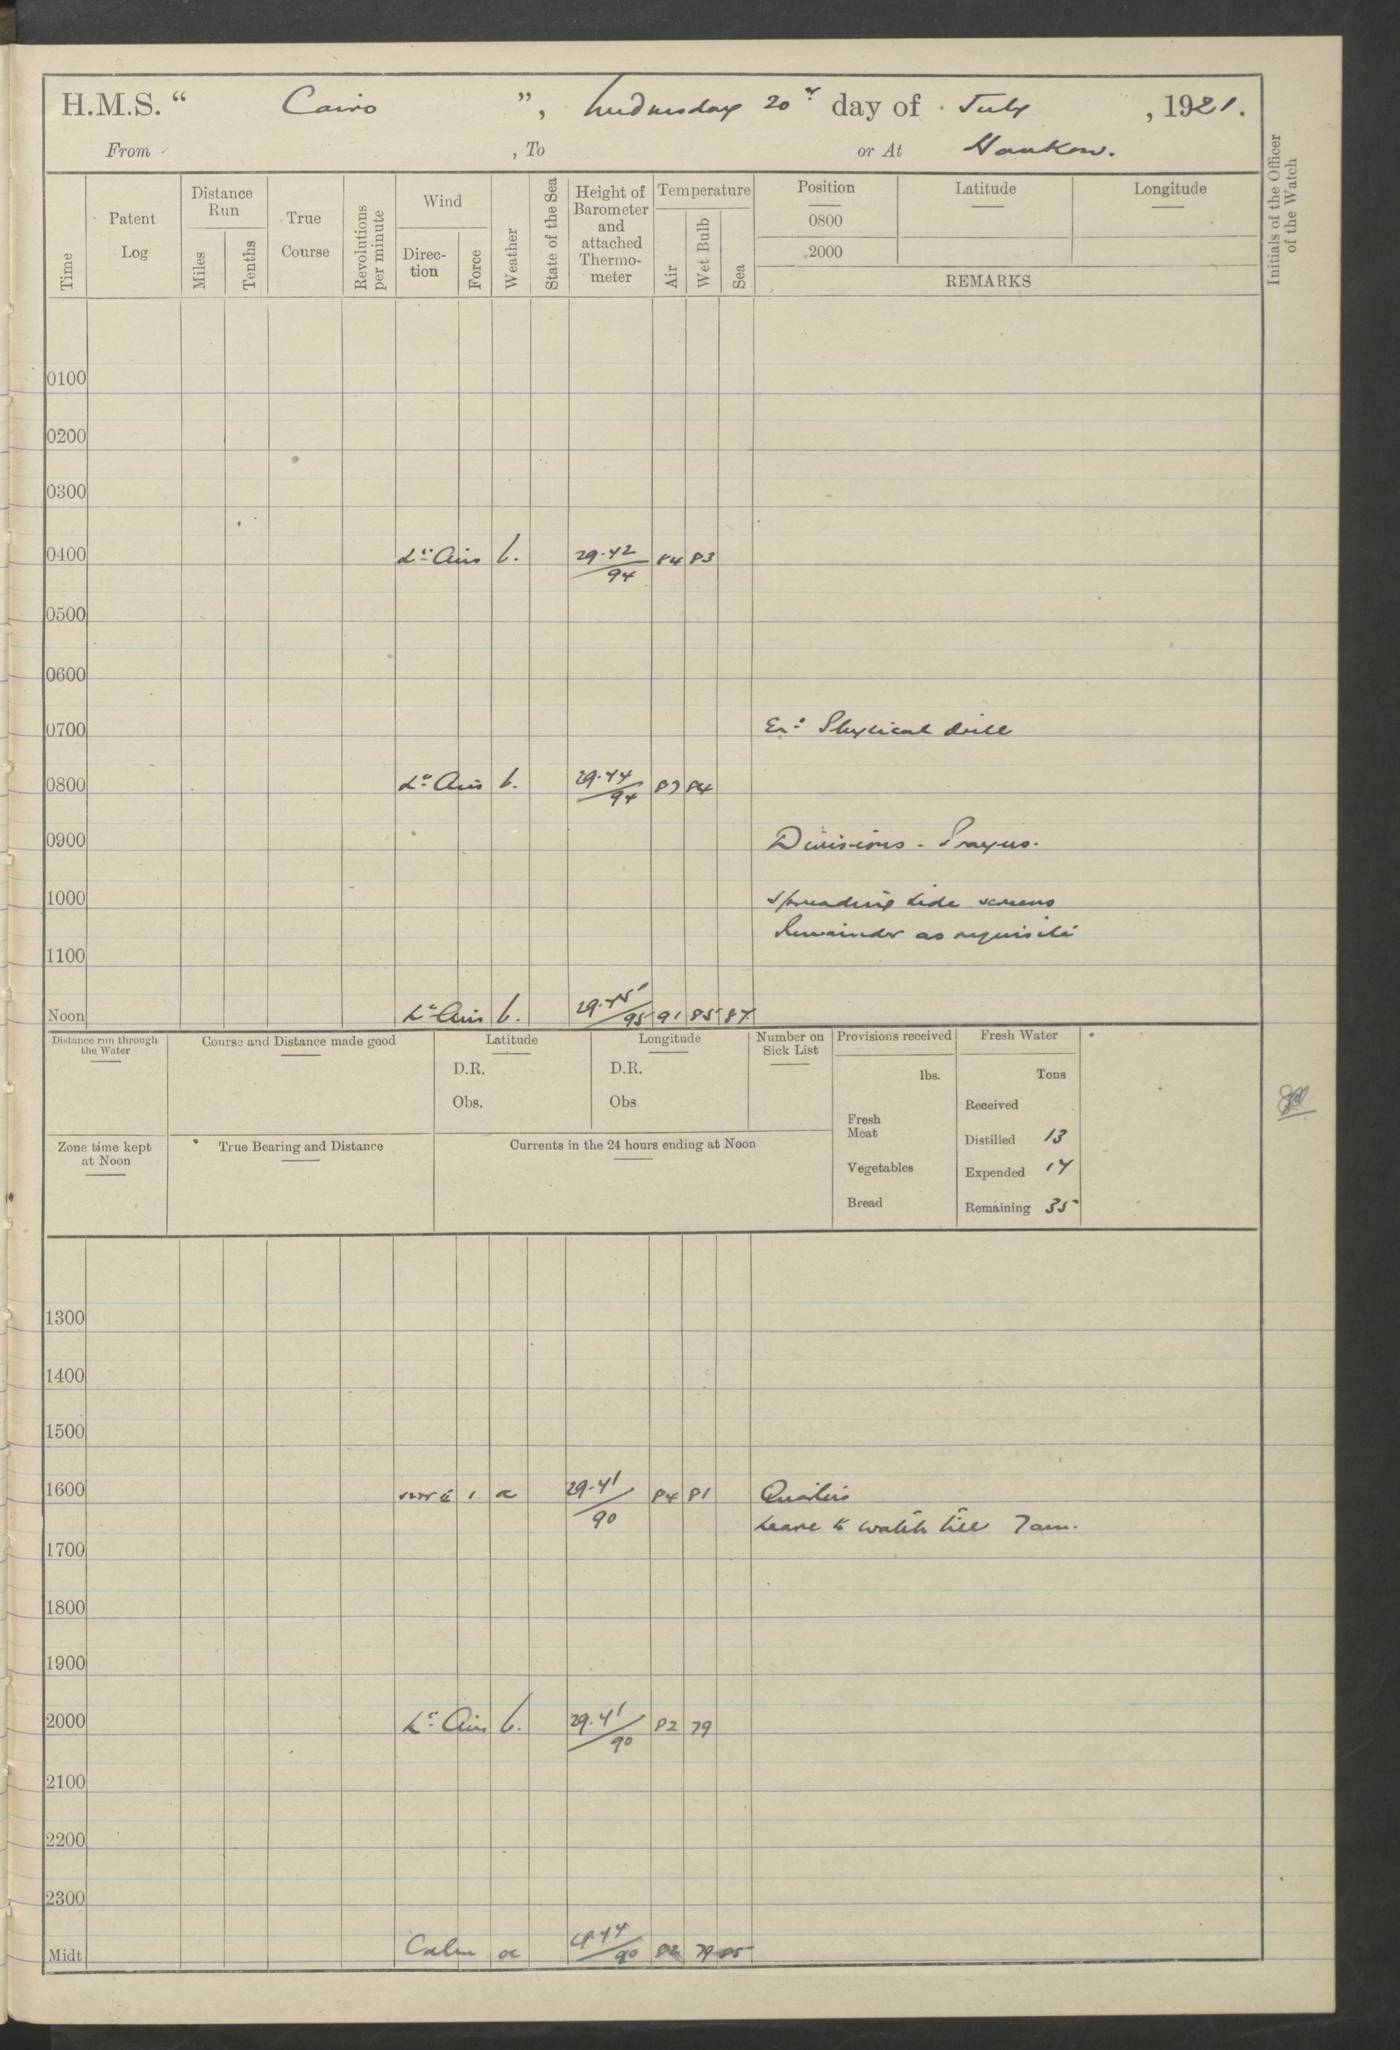 H.M.S. “ Cairo ”, Wednesday 20th day of July, 1921.
From , To or At Hankow.
Time
Patent Log
Distance Run
Miles
Tenths
True Course
Revolutions per minute
Wind
Direc-tion
Force
Weather
State of the Sea
Height of Barometer and attached Thermo-meter
Temperature
Air
Wet Bulb
Sea
Position Latitude Longitude
0800
2000
REMARKS
Initials of the Officer of the Watch
0100
0200
0300
0400 Lt Airs b. 29.42/94 84 83
0500
0600
0700 Ex: Physical drill
0800 Lt Airs b. 29.44/94 87 84
0900 Divisions - Prayers.
1000 Spreading side screens
Remainder as requisite
1100
Noon Lt Airs b. 29.45/95 91 85 87
Distance run through the Water
Course and Distance made good
Latitude
D.R.
Obs.
Longitude
D.R.
Obs
Number on Sick List
Provisions received
lbs.
Fresh Meat
Vegetables
Bread
Fresh Water
Tons
Received
Distilled 13
Expended 14
Remaining 35
Zone time kept at Noon
True Bearing and Distance
Currents in the 24 hours ending at Noon
1300
1400
1500
1600 1 c 29.41/90 84 81 Quarters
Leave to watch till 7am.
1700
1800
1900
2000 Lt Airs b. 29.41/90 82 79
2100
2200
2300
Midt Calm c 29.44/90 82 79 85